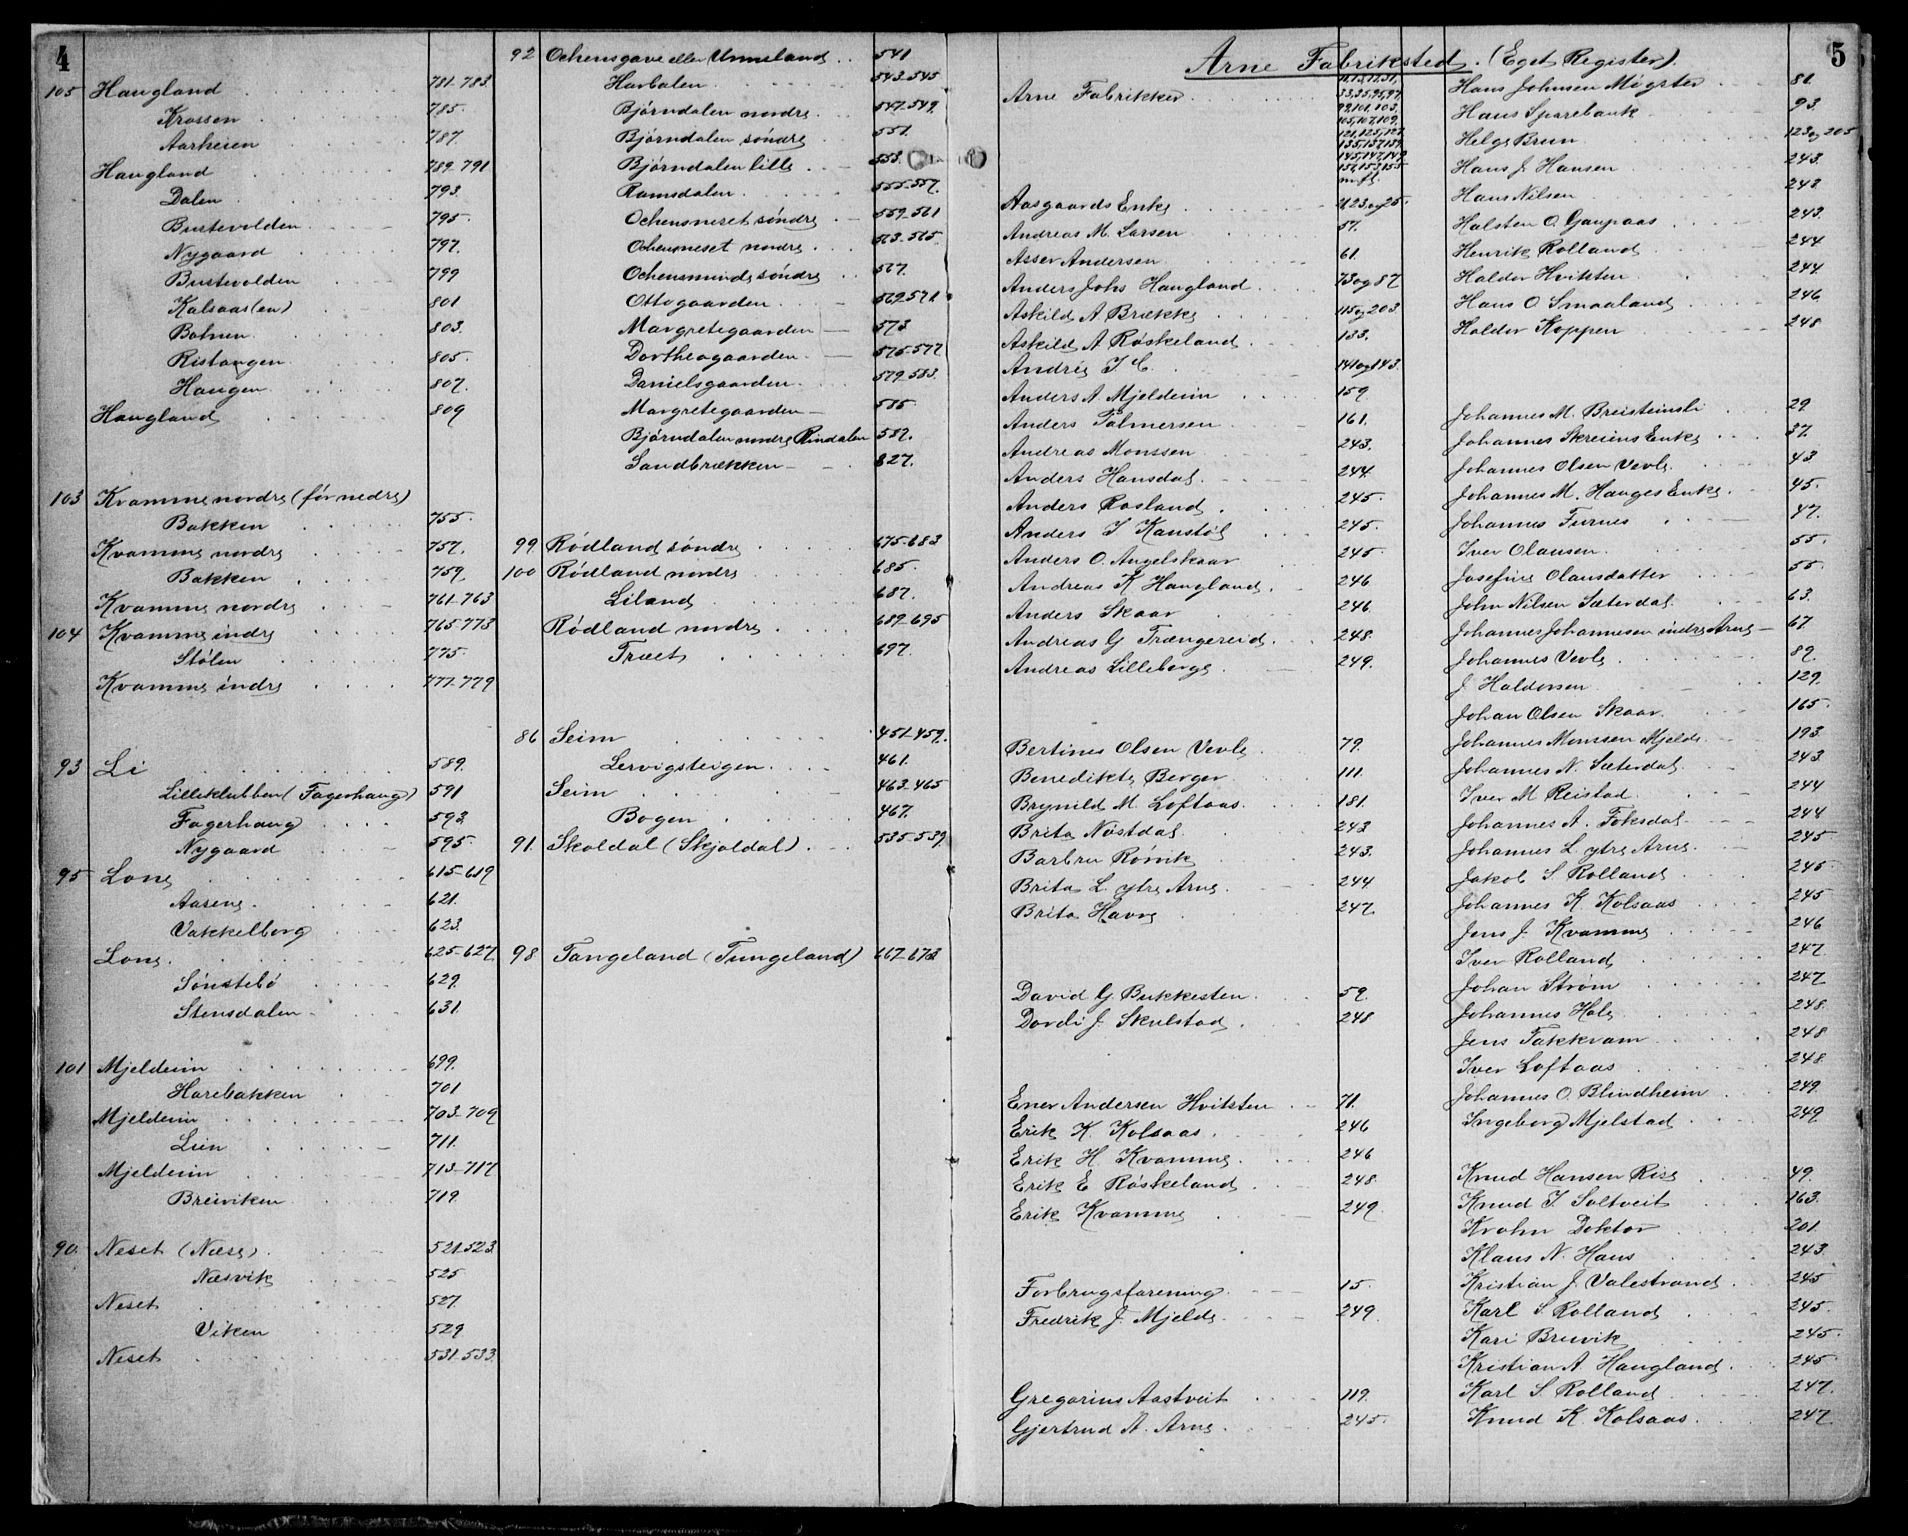 4
105 Haugland 781-783.
Krossen 785.
Aarheien 787.
Haugland 789-791
Dalen 793.
Bustevolden 795.
Nygaard 797.
Bustevolden 799
Kalsaas(en) 801
Botnen 803.
Ristangen 805.
Haugen 807.
Haugland 809
103 Kvamme nordre (før nedre)
Bakken 755.
Kvamme nordre 757.
Bakken 759.
Kvamme nordre 761-763
104 Kvamme indre 765-773
Stølen 775.
Kvamme indre 777-779
93 Li 589.
Lilleklubben (Fagerhaug) 591
Fagerhaug 593.
Nygaard 595.
95 Lone 615-619
Aasene 621.
Vakkelborg 623.
Lone 625-627.
Sønstebø 629.
Stensdalen 631.
101 Mjeldeim 699.
Harebakken 701
Mjeldeim 703-709
Lien 711.
Mjeldeim 713-717
Breiviken 719.
90 Neset (Næse) 521-523.
Næsvik 525
Neset 527.
Viken 529
Neset 531-533.
92 Ochensgave eller Unneland 541
Havbalen 543-545
Bjørndalen nordre 547-549.
Bjørndalen søndre 551.
Bjørndalen lille 553.
Ramsdalen 555-557.
Ochensneset søndre 559-561
Ochensneset nordre 563-565.
Ochensminde søndre 567.
Ottogaarden 569-571
Margretegaarden 573
Dortheagaarden 575-577
Danielsgaarden 579-583.
Margretegaarden 585
Bjørndalen nordre Rindalen 587.
Sandbrekken 827.
99 Rødland søndre 675-683
100 Rødland nordre 685.
Liland 687.
Rødland nordre 689-695
Træet 697.
86 Seim 451-459.
Lervigsteigen 461.
Seim 463-465
Bogen 467.
91. Skoldal (Skjoldal) 535-539.
98 Tangeland (Tungeland) 667-673
5
Arne Fabriksted. (Eget Register).
Arne Fabrikker 11,13,17,31,
33,35,95,97,
99,101,103,
105,107,109,
121,125,127,
135,137,139,
145,147,149,
151,153,155
m.fl.
Aasgaards Enke 21,23 og 25.
Andreas M. Larsen 57.
Asser Andersen 61.
Anders Johs Haugland 73 og 87
Askild A Brække 115 og 203.
Askild A Røskeland 133.
Andrés I. C. 141 og 143.
Anders A Mjeldeim 159
Anders Palmersen 161.
Andreas Monssen 243.
Anders Hansdal 244.
Anders Rosland 245.
Anders I Kanstøl 245.
Anders O. Angelskaar 245
Andreas K Haugland 246
Anders Skaar 246.
Andreas G Trængereid 248.
Andreas Lilleberge 249.
Bertines Olsen Vevle 79.
Benedikte Berger 111.
Brynild M. Loftaas 181.
Brita Nøstdal 243
Barbru Rørvik 243.
Brita L. ytre Arne 244
Brita Havre 247.
David G. Bukkesten 59.
Dordi J. Skulstad 248
Ener Andersen Hvitsten 71.
Erik K. Kolsaas 246
Erik H Kvamme 246
Erik E Røskeland 248
Erik Kvamme 249
Forbrugsforening 15.
Fredrik J. Mjelde 249.
Gregorius Aastveit 119.
Gjertrud A. Arne 245.
Hans Johnsen Møgster 81.
Haus Sparebank 93.
Helge Brun 123 og 205
Hans J. Hansen 243.
Hans Nilsen 243
Halsten O. Gaupaas 243.
Henrik Rolland 244
Haldor Hvitsten 244
Hans O Smaaland 246
Haldor Koppen 248
Johannes M. Breisteinsli 29
Johannes Skreiens Enke 37.
Johannes Olsen Vevle 43
Johannes M. Hauges Enke 45.
Johannes Furnes 47.
Iver Olausen 55.
Josefine Olausdatter 55.
John Nilsen Sæterdal 63.
Johannes Johannesen indre Arne 67.
Johannes Vevle 89.
J Haldorsen 129.
Johan Olsen Skaar 165.
Johannes Monssen Mjelde 193.
Johannes N. Sæterdal 243.
Iver M Reistad 244
Johannes A. Foksdal 244
Johannes L. ytre Arne 245
Jakob S. Rolland 245
Johannes K. Kolsaas 245
Jens J. Kvamme 246
Iver Rolland 247.
Johan Strøm 247
Johannes Hole 248.
Jens Takkvam 248
Iver Loftaas 248
Johannes O. Blindheim 249.
Ingeborg Mjelstad 249
Knud Hansen Rise 49.
Knud I Soltveit 163.
Krohn Doktor 201.
Klaus N. Haus 243.
Kristian J. Valestrand 245
Karl S. Rolland 245.
Kari Bruvik 245.
Kristian A. Haugland 245
Karl S. Rolland 247.
Knud K. Kolsaas 247.